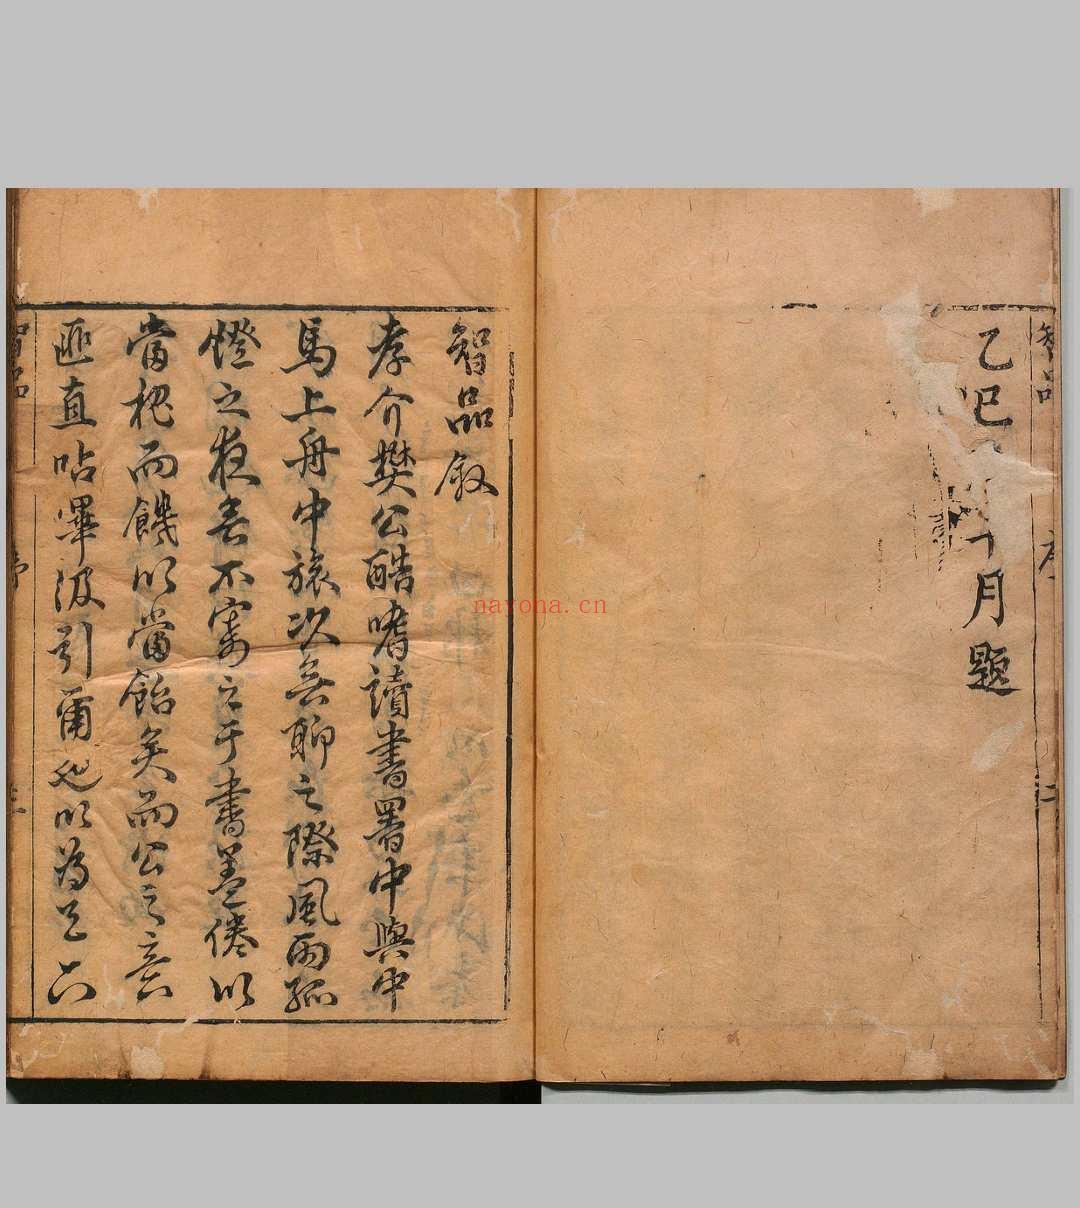 智品
序
二
乙巳
十月題
智品敘
孝介樊公酷嗜讀書署中輿中
馬上舟中旅次無聊之際風雨孤
燈之夜無不寄之于書蓋倦以
當枕而饑以當飴矣而公之意
匪直呫嗶汲引爾也以為
智品
序
nayona.cn